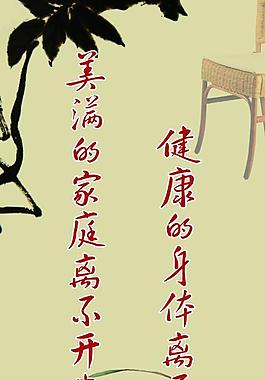 健康的身体离
美满的家庭离不开